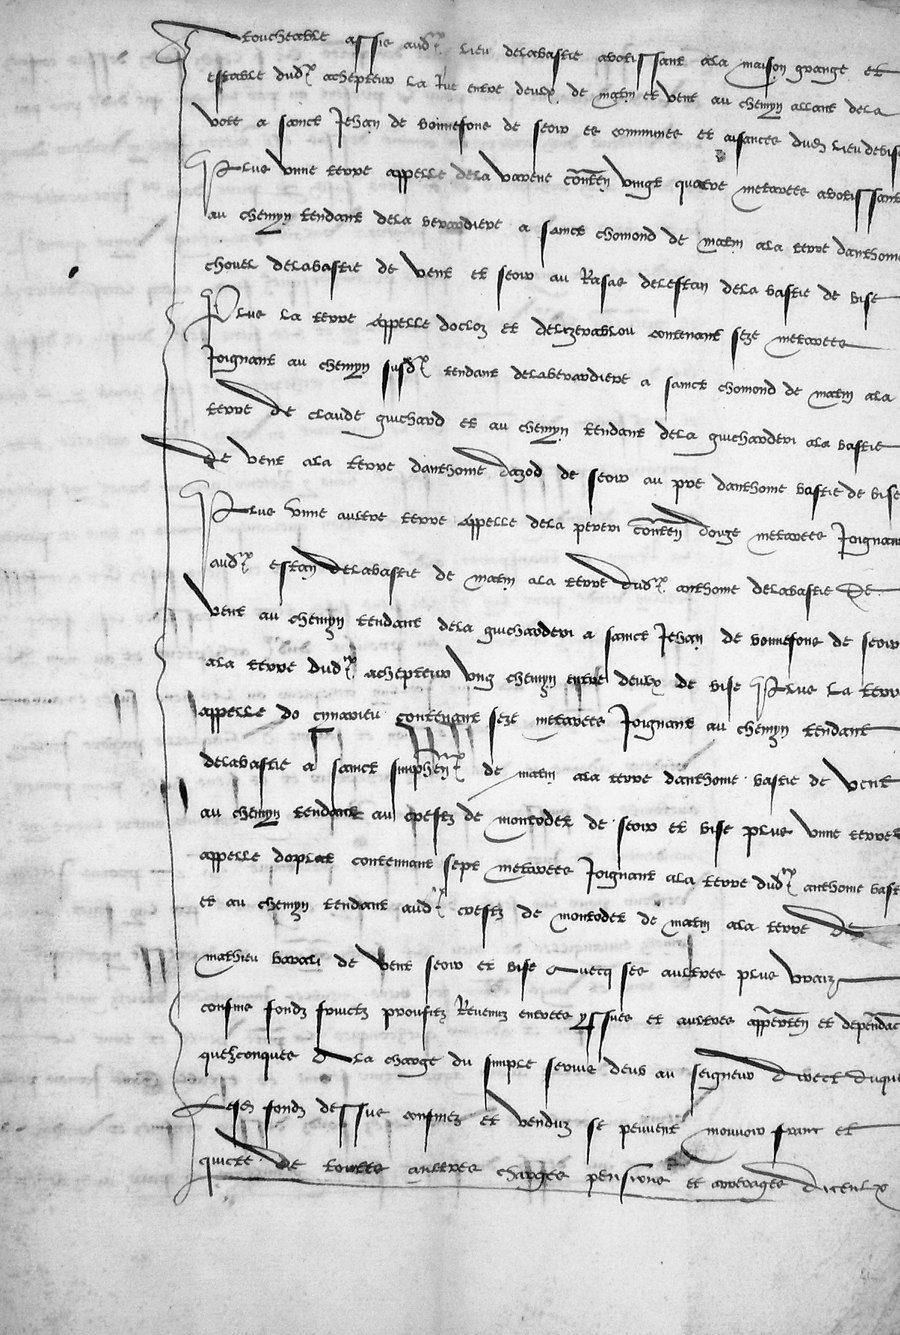 Et toucheable assis aud lieu delabastie aboutissant ala maison grange et
estable dud achepteur la rue entre deulx de matin et vent au chemyn allant dela
vote a sainct Jehan de bonnefons de seoir es communes et aisances dud lieu de bise
Plus unne terre appelle dela varene conten vingt quatre meterees aboutissant
au chemyn tendant dela berardiere a sainct chomond de matin ala terre danthome
chovel delabastie de vent et seoir au Rasas delestan dela bastie de bise
Plus la terre appelle doclos et contenant seze meterees
Joignant au chemyn susd tendant delaberardiere a sainct chomond de matin ala
terre de claude guichard et au chemyn tendant dela guicharderi ala bastie
de vent ala terre danthome dazod de seoir au pre danthome bastie de bise
Plus unne aultre terre appelle dela pereri conten douze meterees Joignant
aud estan delabastie de matin ala terre dud anthome delabastie de
vent au chemyn tendant dela guicharderi a sainct Jehan de bonnefons de seoir
ala terre dud achepteur ung chemyn entre deulx de bise Plus la terre
appelle do cynarieu contenant seze meterees Joignant au chemyn tendant
delabastie a sainct simphen de matin ala terre danthome bastie de vent
au chemyn tendant au crestz de montodet de seoir et bise plus unne terre
appelle doplat contennant sept meterees Joignant ala terre dud anthome bast
et au chemyn tendant aud crestz de montodet de matin ala terre de
mathieu barali de vent seoir et bise Avecq ses aultres plus vraiz
confins fondz fruictz proufitz Revenuz entrees yssues et aultres apperten et dependac
quelzconques A la charge du simple servis deus au seigneur direct duque
Lesd fondz dessus confinez et venduz se peuvent mouvoir franc et
quicte de toutes aultres charges pensions et arrerages diceulx